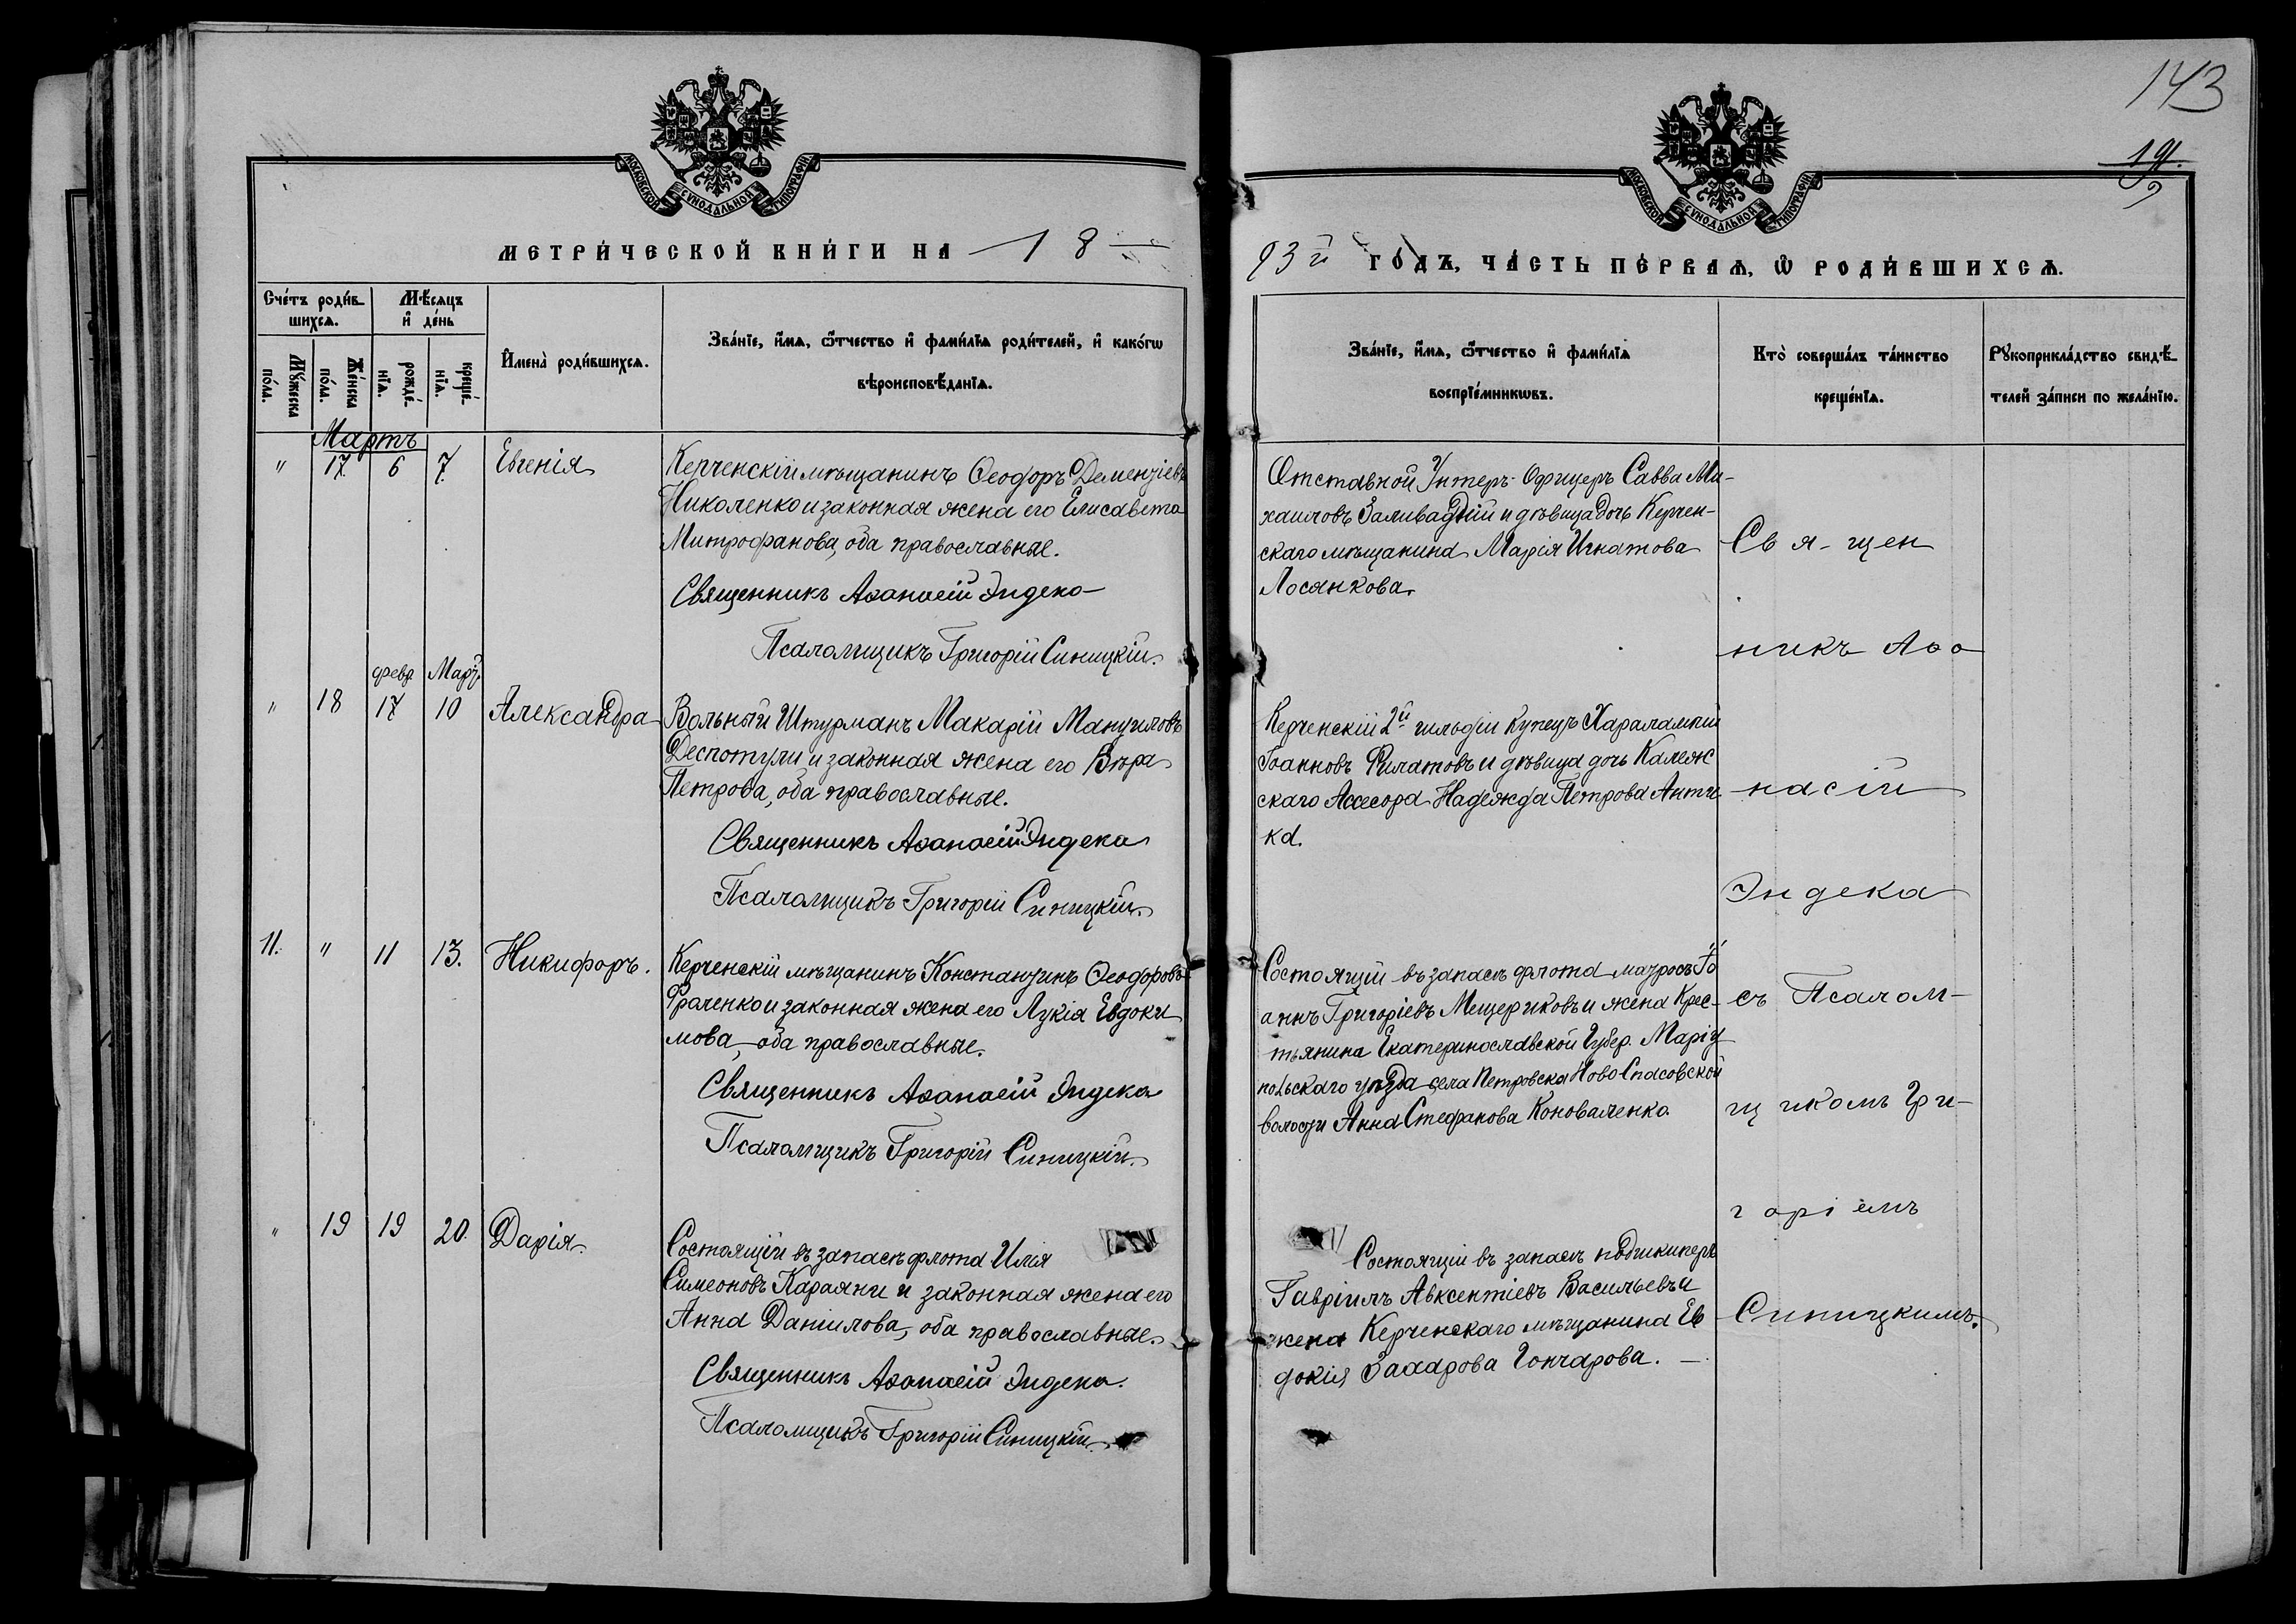 143
19.
МОСКОВСКОЙ СѴНОДАЛЬНОЙ ТИПОГРАФІИ
МОСКОВСКОЙ СѴНОДАЛЬНОЙ ТИПОГРАФІИ
МЕТРИ́ЧЕСКОЙ КНИ́ГИ НА 18
93й ГО́ДЪ, ЧА́СТЬ ПЕ́РВАѦ, Ѽ РОДИ́ВШИХСѦ.
Счéтъ роди́в-
шихсѧ.
Мѣ́сѧцъ
и҆ де́нь
Мꙋ́жеска
по́ла.
Же́нска
по́ла.
рожде́-
нїѧ.
креще́-
нїѧ.
И҆мена̀ роди́вшихсѧ.
Зва́нїе, и҆́мѧ, ѻ҆́тчество и҆ фами́лїѧ роди́телей, и҆ како́гѡ
вѣроисповѣ́данїѧ.
Зва́нїе, и҆́мѧ, ѻ҆́тчество и҆ фами́лїѧ
воспрїе́мникѡвъ.
Кто̀ соверша́лъ та́инство
креще́нїѧ.
Рꙋкоприкла́дство свидѣ́-
телей за́писи по жела́нїю.
Мартъ
" 17. 6 7. Евгенія
Керченскій мѣщанинъ Ѳеодоръ Дементіевъ
Николенко и законная жена его Елисавета
Митрофанова, оба православные.
Священникъ Аѳанасій Эндека
Псаломщикъ Григорій Синицкій.
Отставной Унтеръ-Офицеръ Савва Ми-
хаиловъ Заливадній и дѣвица дочь Керчен-
скаго мѣщанина Марія Игнатова
Лосянкова.
февр. Мар.
" 18 17 10 Александра
Вольный Штурманъ Макарій Мануиловъ
Деспотули и законная жена его Вѣра
Петрова, оба православные.
Священникъ Аѳанасій Эндека
Псаломщикъ Григорій Синицкій.
Керченскій 2й гильдіи купецъ Харалампій
Іоанновъ Филатовъ и дѣвица дочь Калеж
скаго Ассесора Надежда Петрова Анти
ка.
11. " 11 13. Никифоръ.
Керченскій мѣщанинъ Константинъ Ѳеодоровъ
Фраченко и законная жена его Лукія Евдоки
мова, оба православные.
Священникъ Аѳанасій Эндека
Псаломщикъ Григорій Синицкій.
Состоящій въ запасѣ флота матросъ Іо
аннъ Григоріевъ Мещериковъ и жена Крес-
тьянина Екатеринославской Губер. Маріу
польскаго уѣзда села Петровска Ново Спасовской
волости Анна Стефанова Коноваленко
" 19 19 20. Дарія.
Состоящій въ запасѣ флота Илія
Симеоновъ Караяни и законная жена его
Анна Даніилова, оба православные.
Священникъ Аѳанасій Эндека.
Псаломщикъ Григорій Синицкій.
Состоящій въ запасѣ подшкиперъ
Гавріилъ Авксентіевъ Васильевъ и
жена Керченскаго мѣщанина Ев
докія Захарова Гончарова.
Свя-щен
никъ Аѳа
насій
Эндека
съ Псалом-
щикомъ Гри-
горіемъ
Синицкимъ.